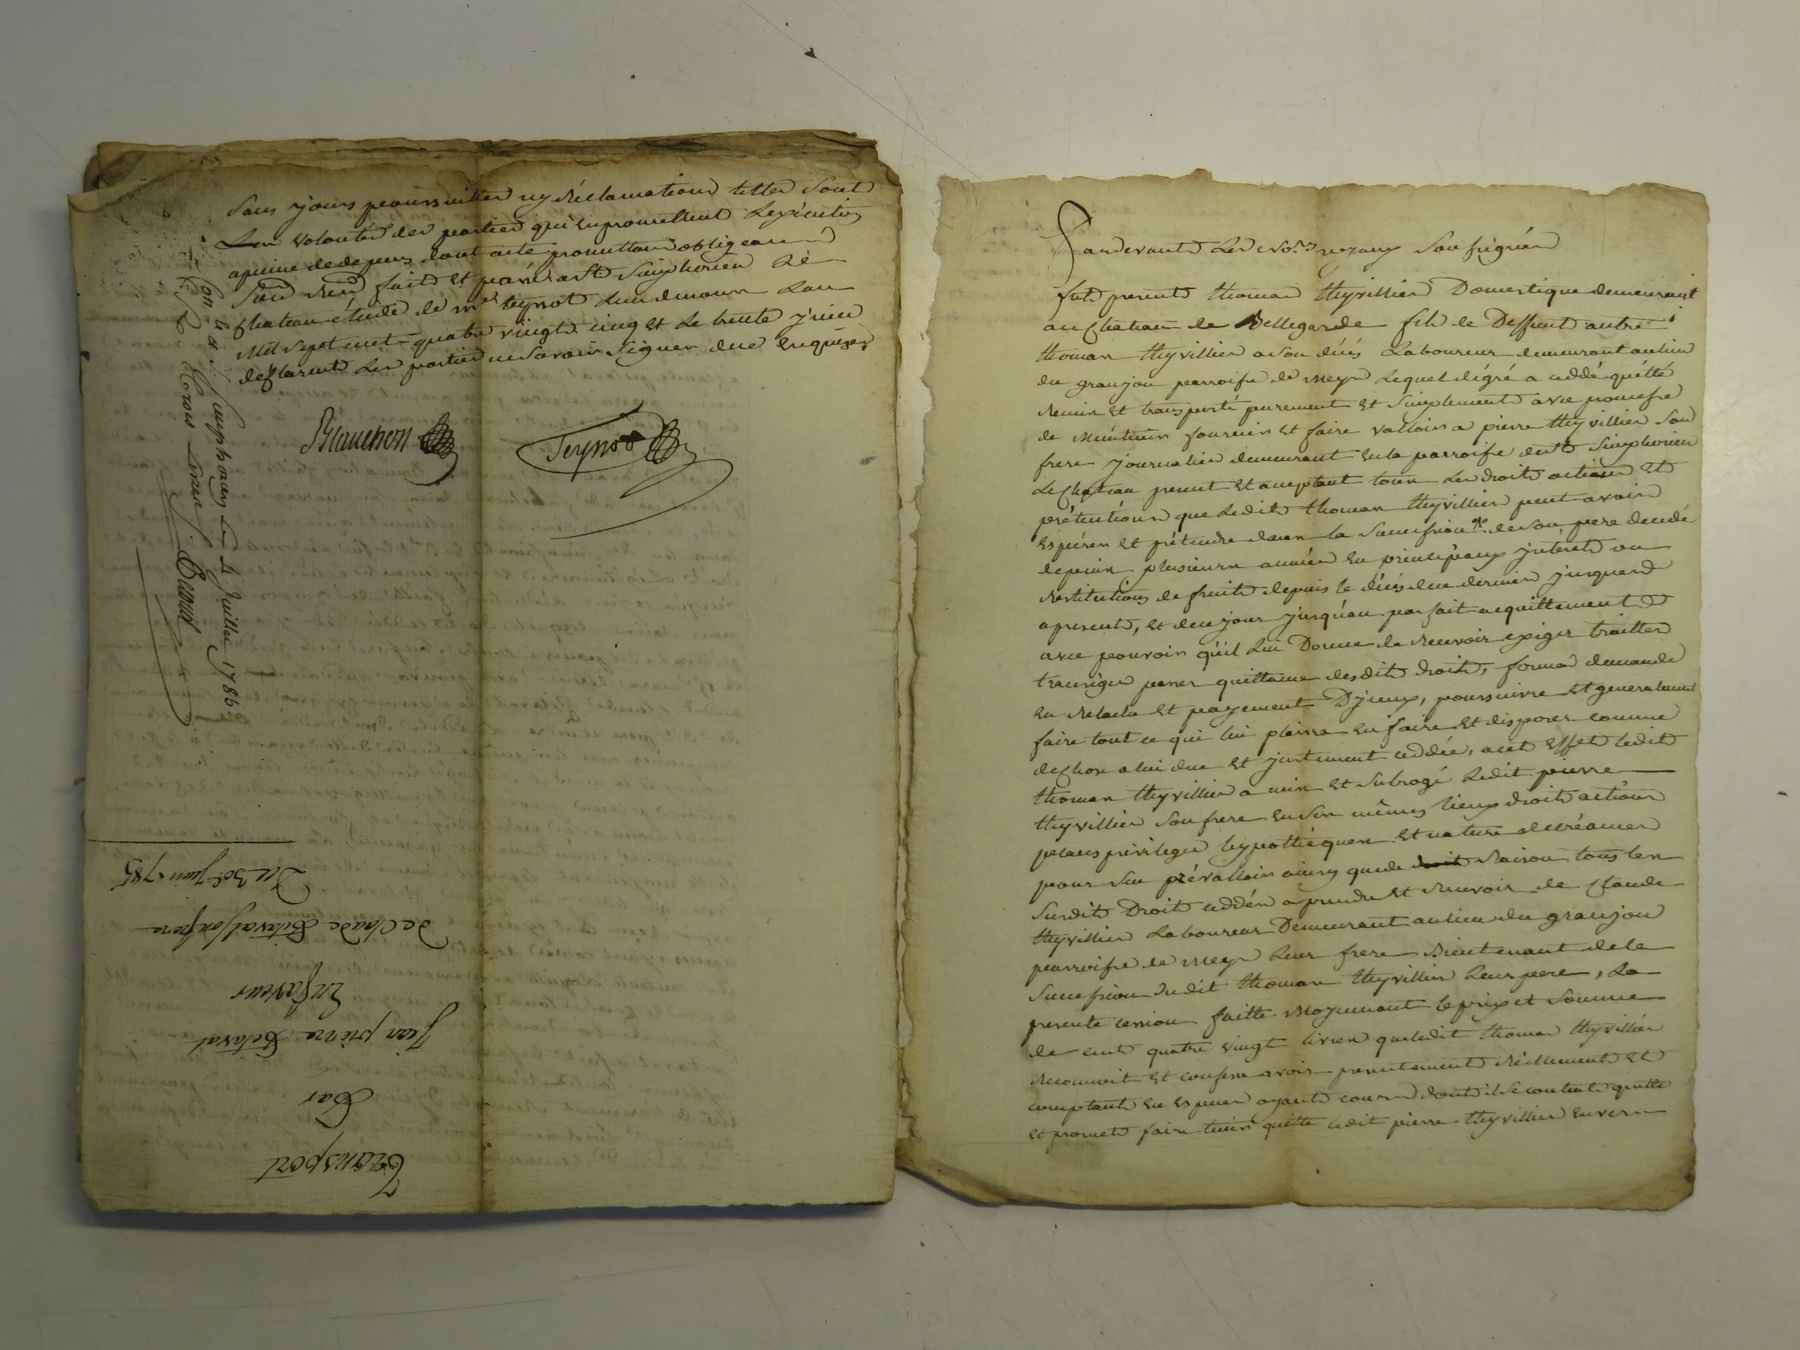 Sans jours poursuitter ny réclamationd telles sont
Les volontés des parties qui en promettent Lexécution
apeine de depens dont acte promettant obligeant
fait et passé a St Simphorien Le
Chateau étude de me teynot Lun de nous Lan
Mil sept cent quatre vingt cinq et Le trente juin
declarent Les parties ne Savoir Signer de ce enquises
Blanchon
Teynot
Con. a St Simphorien Le 4 Juillet 1785.
Livres
Transport
Par
Jean pierre Bitaval
En faveur
De Claude Bitaval son frere
Du 30e Juin 1785
Pardevant Les No.res royaux Soussignés
fut present thomas thyvillier Domestique demeurant
au Chateau de Bellegarde fils de Deffunt autre
thomas thyvillier a son décés Laboureur demeurant au lieu
du granjon parroisse de meys Lequel dégré a ceddé quitté
remis et transporté purement et Simplement avec promesse
de maintenir fournir et faire valloir a pierre thyvillier Son
frere journalier demeurant en la parroisse de St Simphorien
Le Chateau present et acceptant tous Les droits actions et
prétentions que Ledit thomas thyvillier peut avoir
Espérer et prétendre dans la Succession de son pere decedé
depuis plusieurs années en principaux jntérêts ou
restitutions de fruits depuis le décés de ce dernier jusques
apresent, et de ce jour jusqu'au parfait acquittement
avec pouvoir qu'il lui Donne de recevoir exiger traitter
transiger passer quittance desdits droits, former demande
En relache et payement D'jceux, poursuivre et generalement
faire tout ce qui lui plaira en faire et disposer comme
de Chose a lui due et justement ceddée, acet Effet ledit
thomas thyvillier a mis et Subrogé Ledit pierre
thyvillier Son frere en Ses mêmes lieux droits actions
places privileges hypothéques et nature de créances
pour Sen prévalloir ainsy que de droit raison tous les
Susdits Droits ceddés a prendre et recevoir de Claude
thyvillier Laboureur Demeurant au lieu du granjon
parroisse de meys Leur frere Bientenant de la
Succession dudit thomas thyvillier Leur pere, La
presente cession faitte Moyennant le prix et Somme
de cent quatre vingt livres que ledit thomas thyvillier
reconnoit et confesse avoir presentement réellement et
comptant en Especes ayant cours dont il se content quitte
et promet faire tenir quitte ledit pierre thyvillier Envers